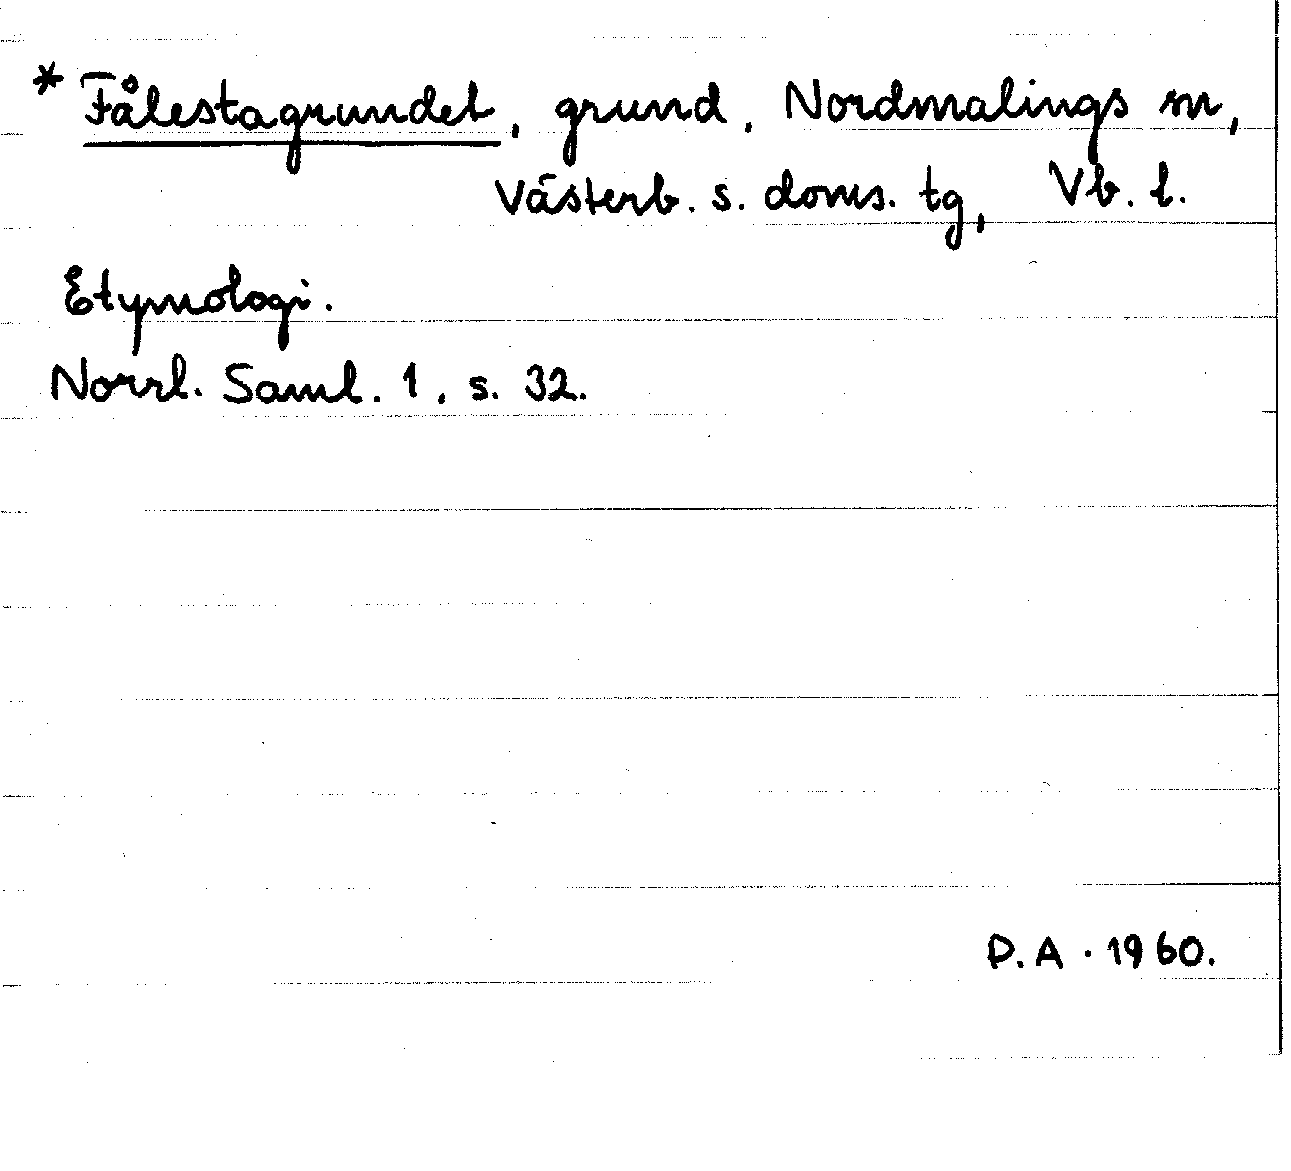 * Fålestagrundet, grund, Nordmalings sn,
Västerb. s. doms. tg, Vb. l.
Etymologi.
Norrl. Saml. 1, s. 32.
P.A. 1960.